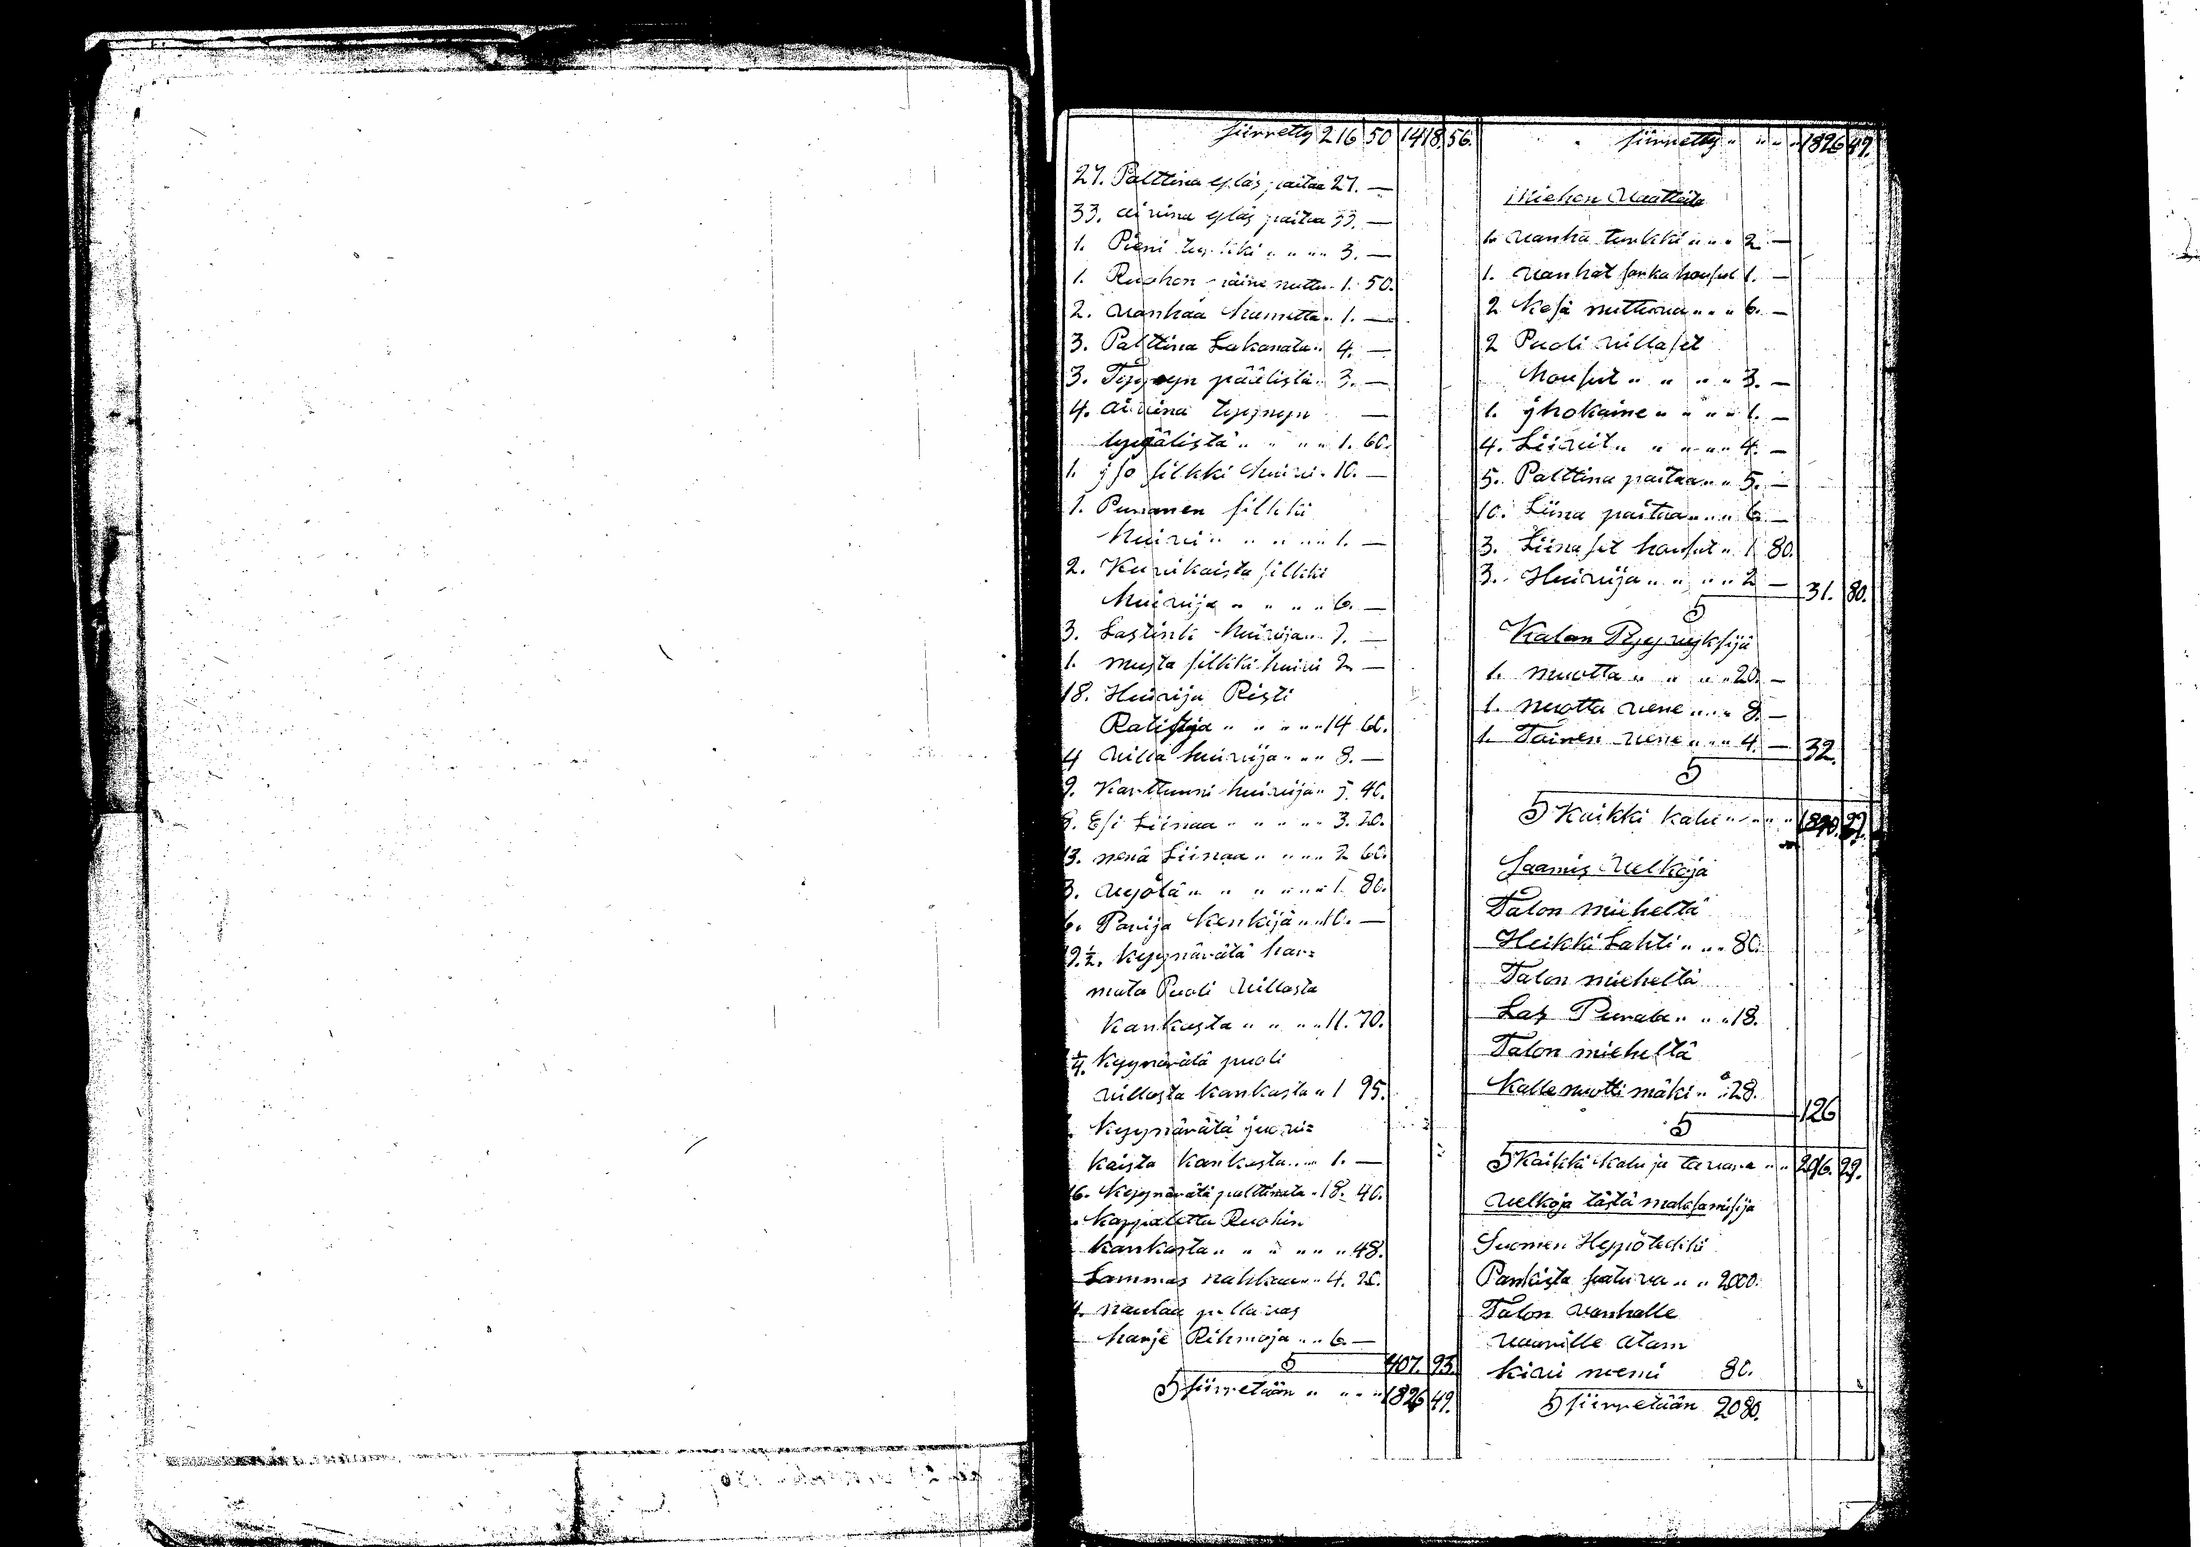 siirretty 216 50 1418. 56.
27. Palttina ylös paitaa 27. —
33. aivina ylös paitaa 33. —
1. Pieni turkki " " " " 3. —
1. Ruohon päine nuttu " 1. 50.
2. vanhaa hametta " 1. —
3. Palttina Lakanata " 4. —
3. Tyynyn päälistä " 3. —
4. aivina tyynyn —
päälistä " " " " 1. 60.
1. jso silkki huivi " 10. —
1. Punanen silkki
huivi " " " " " 1. —
2. Kuvikaista silkki
huivija " " " " 6. —
3. Lastinki huivija " 7. —
1. musta silkki huivi 2 —
18. Huivija Risti
Ratisija " " " " " 14 60.
4 villa huivija " " " 8. —
9. Karttuuni huivija " 5. 40.
8. Esi Liinaa " " " " " 3. 20.
13. nenä Liinaa " " " " 2 60.
3. vyötä " " " " " " 1. 80.
6. Parija Kenkijä " " 10. —
19.½. kyynärätä har=
mata Puoli villasta
kankasta " " " " 11. 70.
¼. kyynärätä puoli
villasta kankasta " 1 95.
kyynärätä juovi=
kaista kankasta " " " 1. —
16. kyynärätä palttinata " 18. 40.
kappaletta Ruohin
kankasta " " " " " " 48.
Lammas nahkaa " " 4. 20.
4. naulaa pellavas
harje Rihmoja " " 6 —
S 407. 93.
S siirretään " " " " 1826 49.
siirretty " " " " 1826 49.
Miehen Vaatteita
1. vanha turkki " " " 2 —
1. vanhat sarka housut 1. —
2 Kesä nuttuva " " " 6. —
2 Puoli villaset
housut " " " " 3. —
1. yhokaine " " " " 1. —
4. Liivit " " " " " 4. —
5. Palttina paitaa " " 5. —
10. Liina paitaa " " " 6 —
3. Liinaset housut " 1 80.
3. Huivija " " " " 2 —
S 31. 80.
Kalan Pyyvyksijä
1. nuotta " " " " 20. —
1. nuotta vene " " " 8. —
1. Toinen vene " " " 4. — 32.
S
S Kaikki kalu " " " " 1890. 29.
Saamis Velkoja
Talon mieheltä
Heikki Lahti " " " 80.
Talon mieheltä
Las " " " 18.
Talon mieheltä
Kalle nuotti mäki " " 28.
S 126
S Kaikki kalu ja tavara " " 2016. 29.
velkoja tästä maksamisija
Suomen Hyppötekki
Pankista satuva " " 2000.
Talon vanhalle
vaarille atam
kivi niemi 80.
S siirretään 2080.